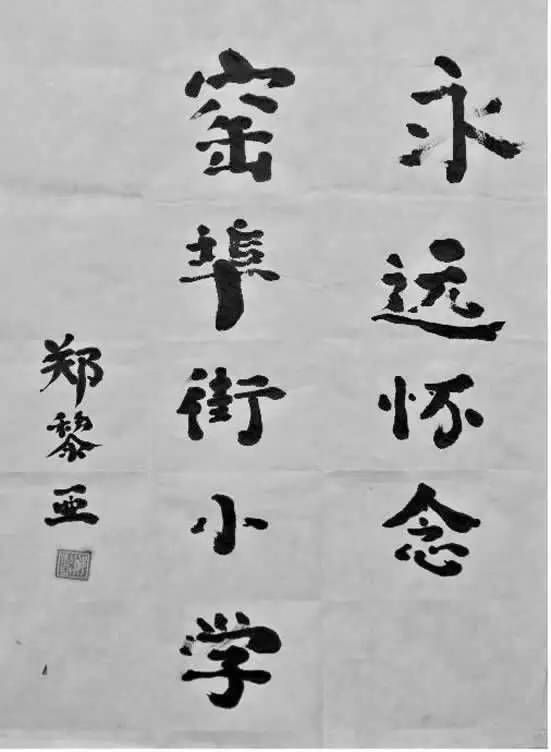 永远怀念
窑埠街小学
郑黎亚